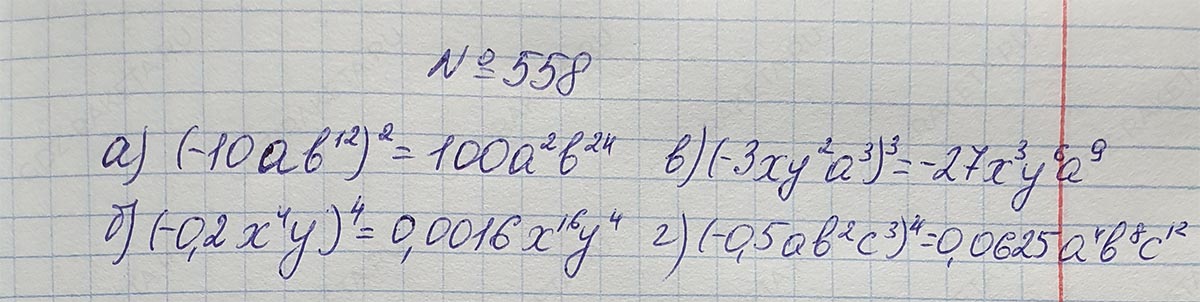 № 558
а) (-10ab¹²)² = 100a²b²⁴ в) (-3xy²a³)³ = -27x³y⁶a⁹
б) (-0,2x⁴y)⁴ = 0,0016x¹⁶y⁴ г) (-0,5ab²c³)⁴ = 0,0625a⁴b⁸c¹²